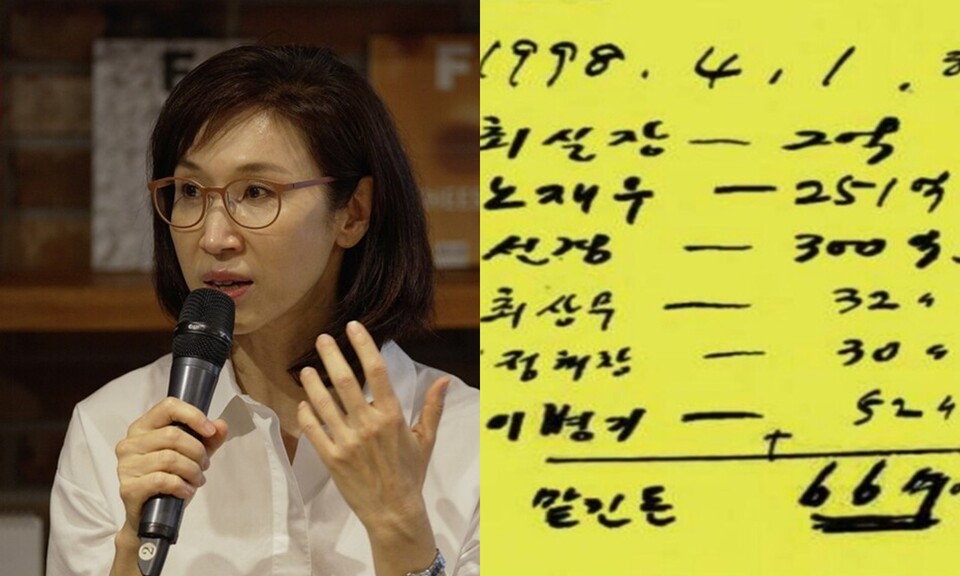 E
F
1998. 4. 1.
최실장 — 2억
노재우 — 251억
선경 — 300억
최상무 — 32〃
정해창 — 30〃
이병기 — 52〃
맡긴돈 667
2